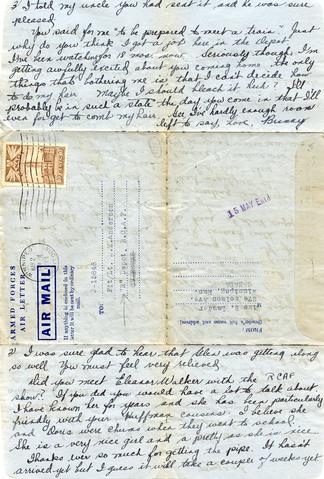 3) I told my uncle you had sent it and he was sure
pleased.
You said for me "to be prepared to meet a train". Just
why do you think I got a job here in the depot.
I've been watching for 18 mos. now. Seriously though, I'm
getting awfully excited about you coming home the only
thing that bothering me is that I can't decide how
to do my hair. Maybe I should bleach it red? I'll
probably be in such a state the day you come in that I'll
even forget to comb my hair. Gee, I've hardly enough room
left to say, love,
ARMED FORCES
AIR LETTER
AIR MAIL
If anything is enclosed in this
letter it will be sent by ordinary
mail.
TO:
Depot, R.C.A.F.
15 MAY
FROM
(Sender's full name and address)
Winnipeg, Man.
2) I was sure glad to hear that Alex was getting along
so well. You must feel very relieved.
Did you meet Eleanor Walker with the RCAF
show? If you did you would have a lot to talk about
I have known her for years and she has been particularly
friendly with your Huffman cousins. I believe she
and Doris were chums when they went to school.
She is a very nice girl and a pretty as she is nice.
Thanks ever so much for getting the pipe. It hasn't
arrived yet but I guess it will take a couple of weeks yet